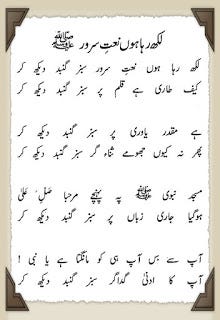 لکھ رہا ہوں نعتِ سرور ﷺ
لکھ رہا ہوں نعتِ سرور سبز گنبد دیکھ کر
کیف طاری ہے قلم پر سبز گنبد دیکھ کر
ہے مقدر یاوری پر سبز گنبد دیکھ کر
پھر نہ کیوں جھومے ثناء گر سبز گنبد دیکھ کر
مسجد نبوی ﷺ پہ پہنچے مرحبا صلِ علیٰ
ہوگیا جاری زباں پر سبز گنبد دیکھ کر
آپ سے بس آپ ہی کو مانگتا ہے یا نبی !
آپ کا ادنیٰ گداگر سبز گنبد دیکھ کر